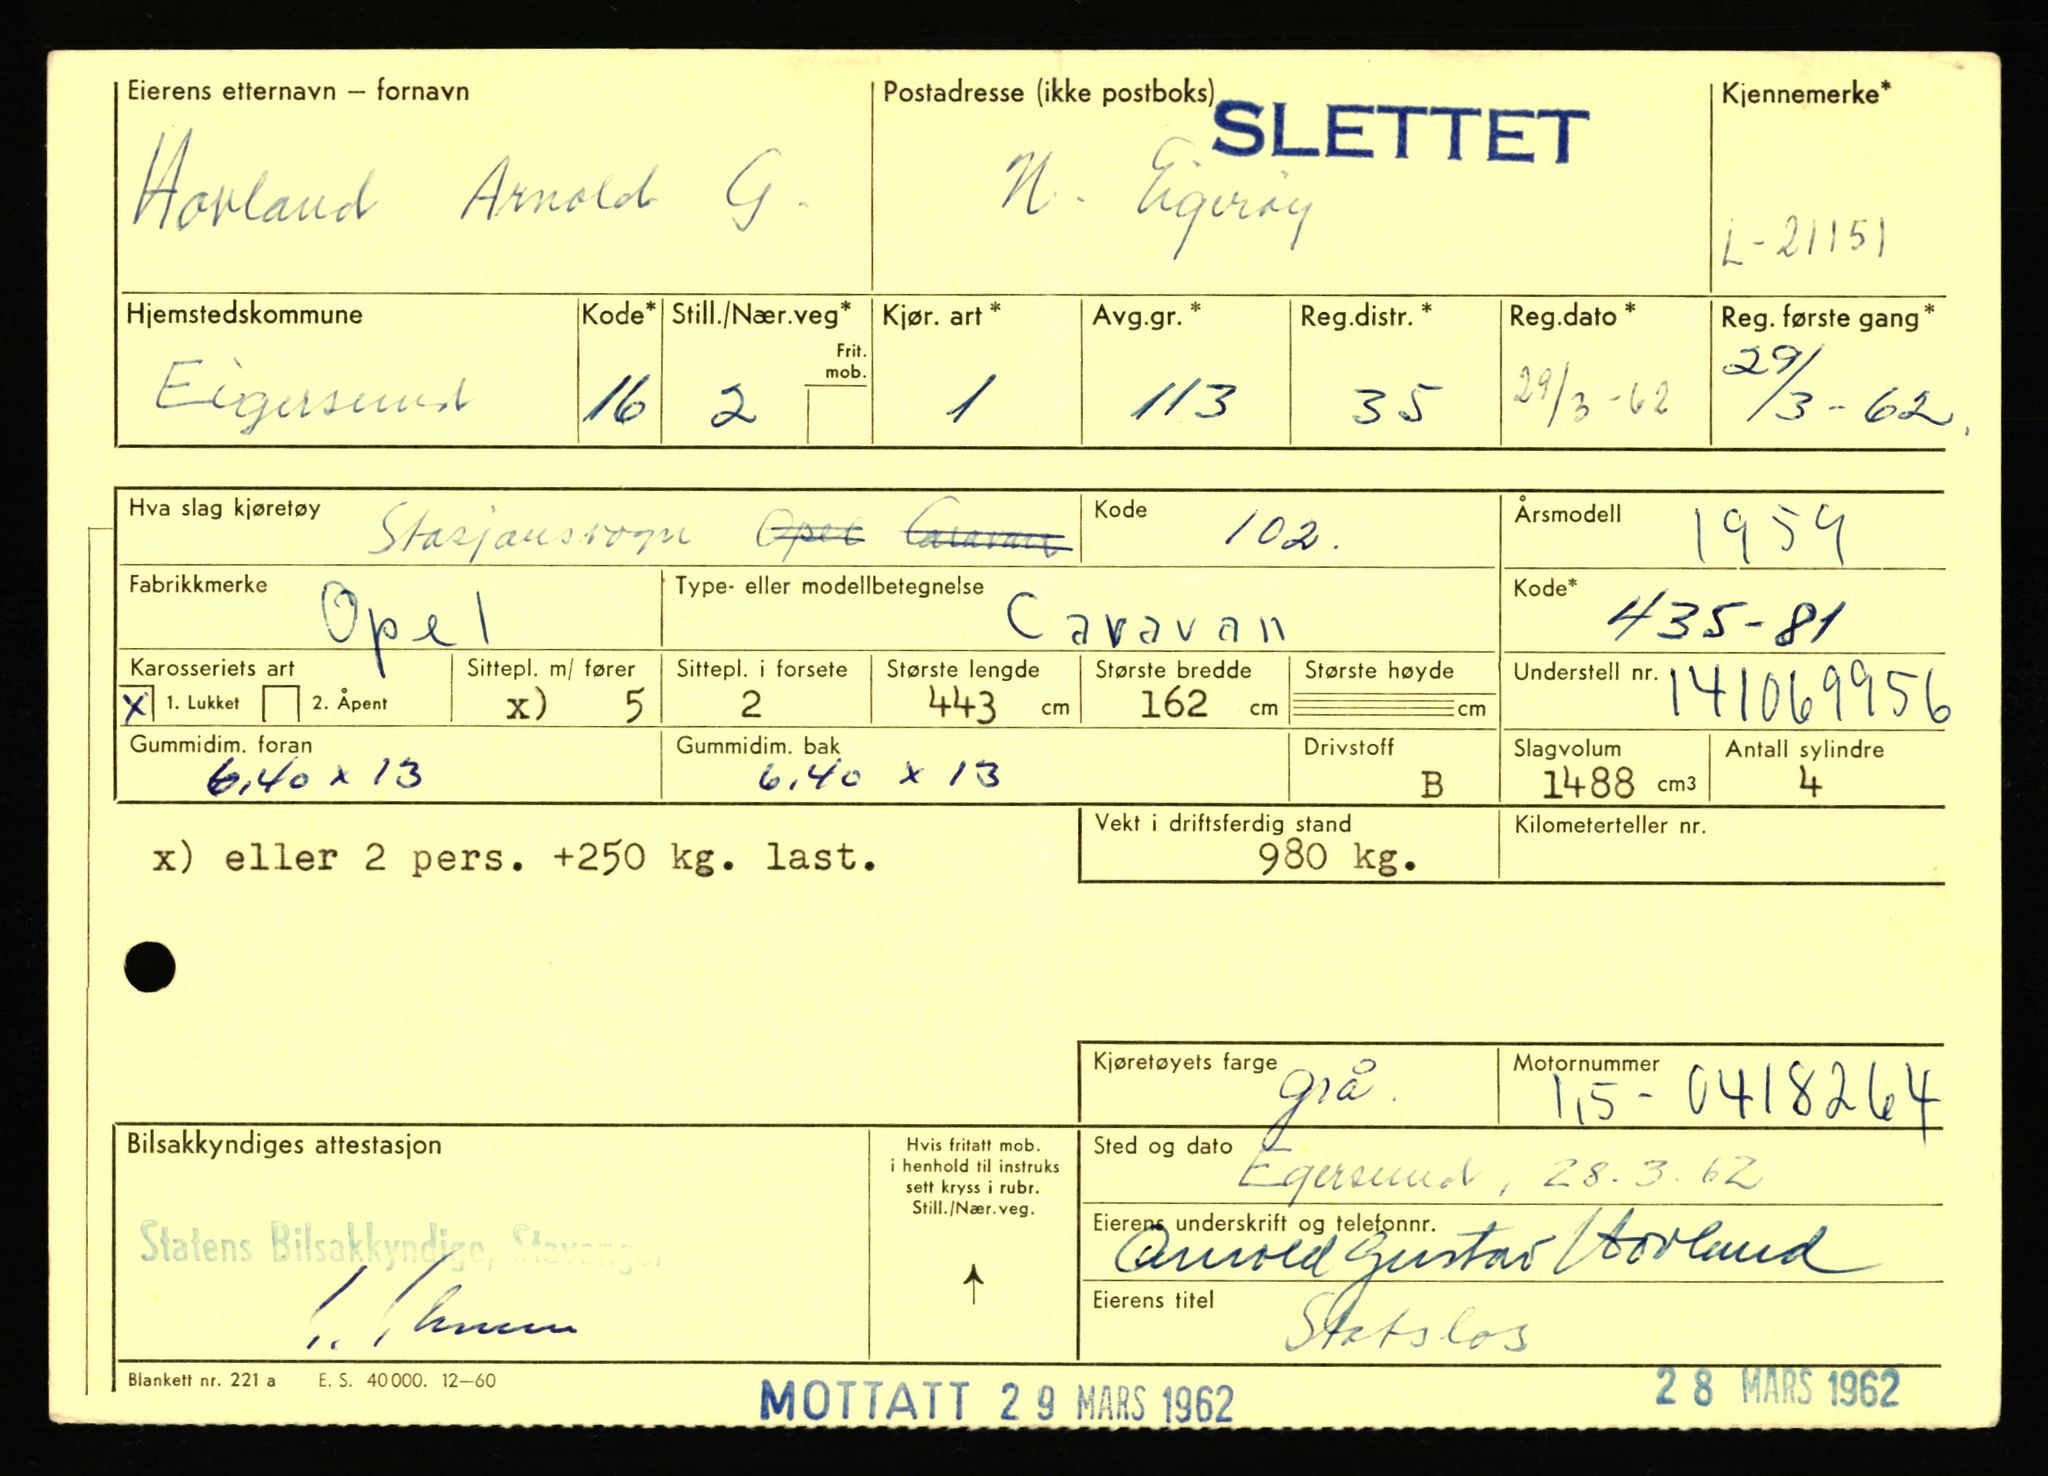 Eierens etternavn – fornavn
Hovland Arnold G.
Postadresse (ikke postboks)
SLETTET
N. Eigerøy
Kjennemerke*
L-21151
Hjemstedskommune
Eigersund
Kode*
16
Still./Nær.veg*
Frit. mob.
2
Kjør. art*
1
Avg.gr.*
113
Reg.distr.*
35
Reg.dato*
29/3-62
Reg. første gang*
29/3-62.
Hva slag kjøretøy
Stasjonsvogn Opel Caravan
Kode
102.
Årsmodell
1959
Fabrikkmerke
Opel
Type- eller modellbetegnelse
Caravan
Kode*
435-81
Karosseriets art
x 1. Lukket 2. Åpent
Sittepl. m/ fører
x) 5
Sittepl. i forsete
2
Største lengde
443 cm
Største bredde
162 cm
Største høyde
cm
Understell nr.
141069956
Gummidim. foran
6,40 x 13
Gummidim. bak
6,40 x 13
Drivstoff
B
Slagvolum
1488 cm3
Antall sylindre
4
x) eller 2 pers. +250 kg. last.
Vekt i driftsferdig stand
980 kg.
Kilometerteller nr.
Kjøretøyets farge
grå.
Motornummer
1,5-0418264
Bilsakkyndiges attestasjon
Statens Bilsakkyndige, Stavanger
Hvis fritatt mob.
i henhold til instruks
sett kryss i rubr.
Still./Nær.veg.
Sted og dato
Egersund, 28.3.62
Eierens underskrift og telefonnr.
Arnold Gustav Hovland
Eierens titel
Statslos
Blankett nr. 221 a E. S. 40 000. 12–60
MOTTATT 29 MARS 1962
28 MARS 1962